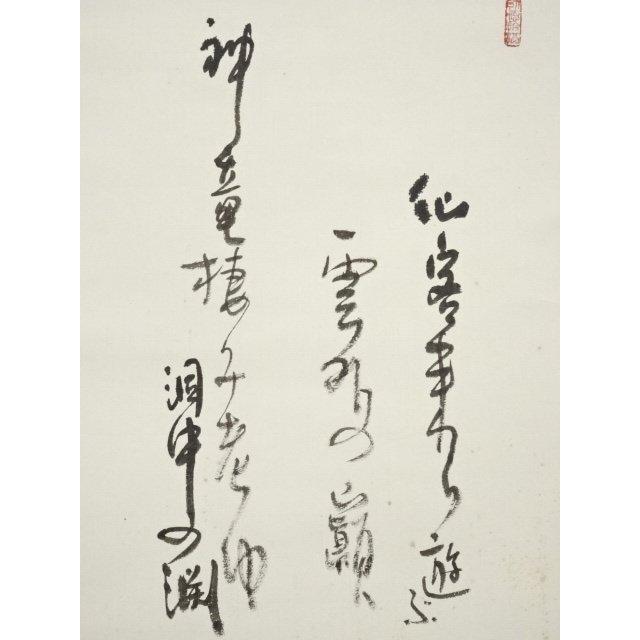 仙客来り遊ぶ
雲外の巓
神竜棲み老ゆ
洞中の淵